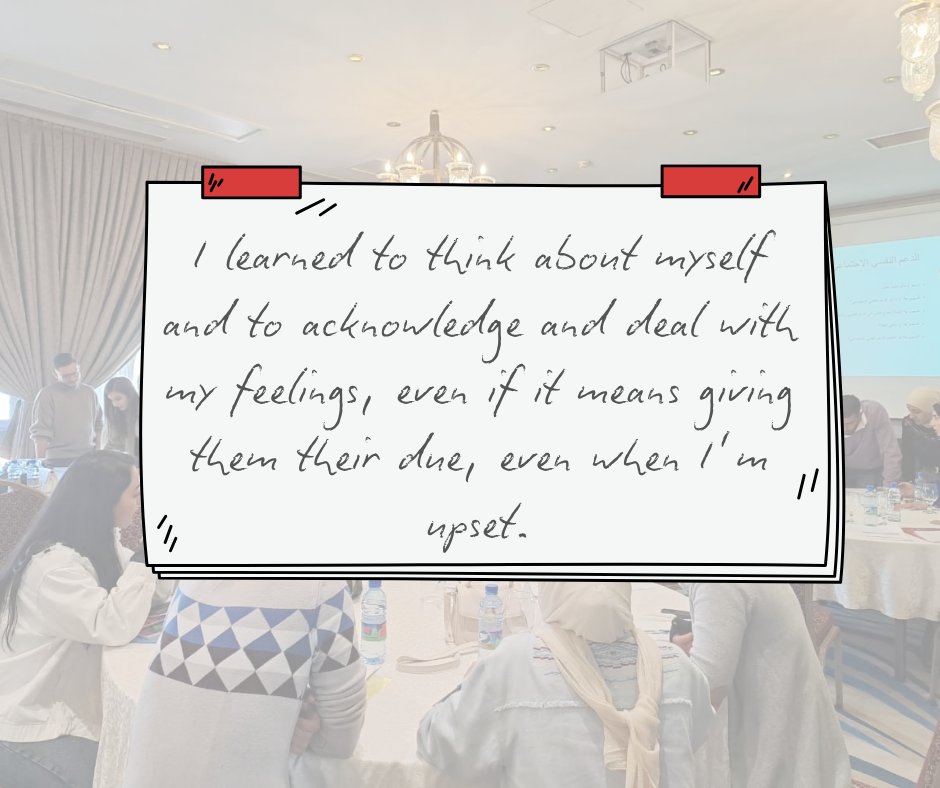 I learned to think about myself
and to acknowledge and deal with
my feelings, even if it means giving
them their due, even when I'm
upset.
الدعم النفسي الاجتماعي